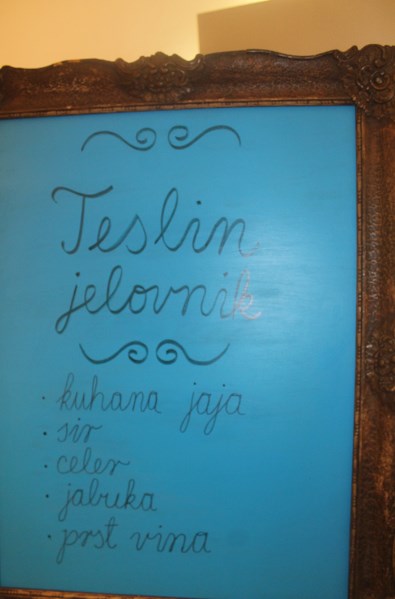 Teslin
jelovnik
· kuhana jaja
· sir
· celer
· jabuka
· prst vina